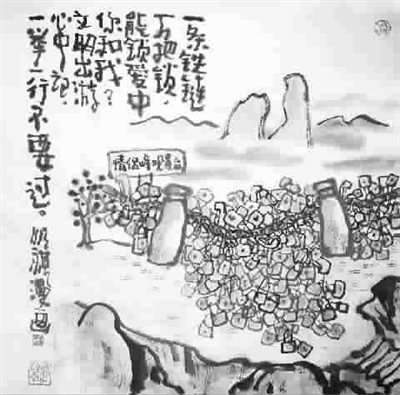 一条铁链
万把锁,
能锁爱中
你和我?
文明出游
心中记,
一举一行不要过。
漫画
情侣峰观景台